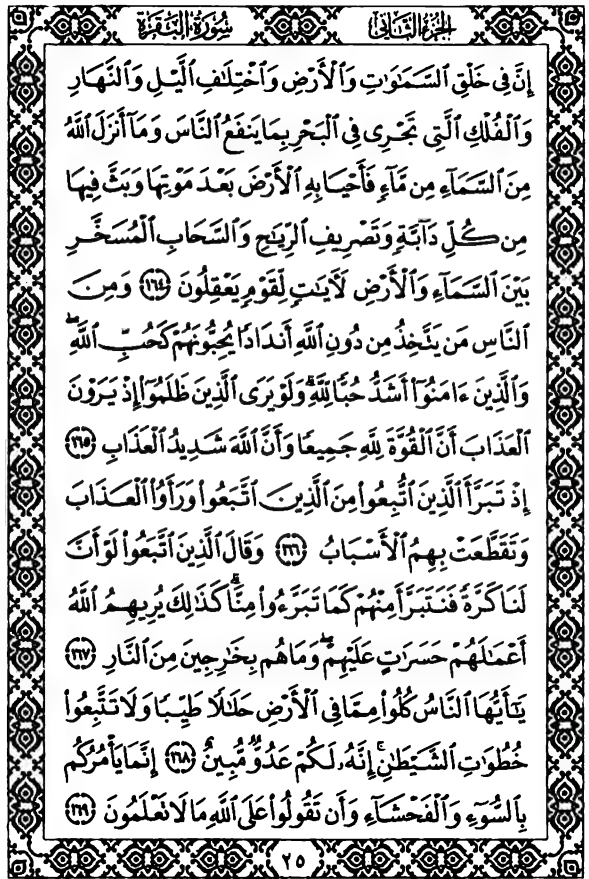 الجزء الثاني
سورة البقرة
إِنَّ فِي خَلْقِ ٱلسَّمَٰوَٰتِ وَٱلْأَرْضِ وَٱخْتِلَٰفِ ٱلَّيْلِ وَٱلنَّهَارِ
وَٱلْفُلْكِ ٱلَّتِي تَجْرِي فِي ٱلْبَحْرِ بِمَا يَنفَعُ ٱلنَّاسَ وَمَآ أَنزَلَ ٱللَّهُ
مِنَ ٱلسَّمَآءِ مِن مَّآءٍ فَأَحْيَا بِهِ ٱلْأَرْضَ بَعْدَ مَوْتِهَا وَبَثَّ فِيهَا
مِن كُلِّ دَآبَّةٍ وَتَصْرِيفِ ٱلرِّيَٰحِ وَٱلسَّحَابِ ٱلْمُسَخَّرِ
بَيْنَ ٱلسَّمَآءِ وَٱلْأَرْضِ لَءَايَٰتٍ لِّقَوْمٍ يَعْقِلُونَ ١٦٤ وَمِنَ
ٱلنَّاسِ مَن يَتَّخِذُ مِن دُونِ ٱللَّهِ أَندَادًا يُحِبُّونَهُمْ كَحُبِّ ٱللَّهِۖ
وَٱلَّذِينَ ءَامَنُوٓا۟ أَشَدُّ حُبًّا لِّلَّهِۗ وَلَوْ يَرَى ٱلَّذِينَ ظَلَمُوٓا۟ إِذْ يَرَوْنَ
ٱلْعَذَابَ أَنَّ ٱلْقُوَّةَ لِلَّهِ جَمِيعًا وَأَنَّ ٱللَّهَ شَدِيدُ ٱلْعَذَابِ ١٦٥
إِذْ تَبَرَّأَ ٱلَّذِينَ ٱتُّبِعُوا۟ مِنَ ٱلَّذِينَ ٱتَّبَعُوا۟ وَرَأَوُا۟ ٱلْعَذَابَ
وَتَقَطَّعَتْ بِهِمُ ٱلْأَسْبَابُ ١٦٦ وَقَالَ ٱلَّذِينَ ٱتَّبَعُوا۟ لَوْ أَنَّ
لَنَا كَرَّةً فَنَتَبَرَّأَ مِنْهُمْ كَمَا تَبَرَّءُوا۟ مِنَّاۗ كَذَٰلِكَ يُرِيهِمُ ٱللَّهُ
أَعْمَٰلَهُمْ حَسَرَٰتٍ عَلَيْهِمْۖ وَمَا هُم بِخَٰرِجِينَ مِنَ ٱلنَّارِ ١٦٧
يَٰٓأَيُّهَا ٱلنَّاسُ كُلُوا۟ مِمَّا فِي ٱلْأَرْضِ حَلَٰلًا طَيِّبًا وَلَا تَتَّبِعُوا۟
خُطُوَٰتِ ٱلشَّيْطَٰنِۚ إِنَّهُۥ لَكُمْ عَدُوٌّ مُّبِينٌ ١٦٨ إِنَّمَا يَأْمُرُكُم
بِٱلسُّوٓءِ وَٱلْفَحْشَآءِ وَأَن تَقُولُوا۟ عَلَى ٱللَّهِ مَا لَا تَعْلَمُونَ ١٦٩
٢٥